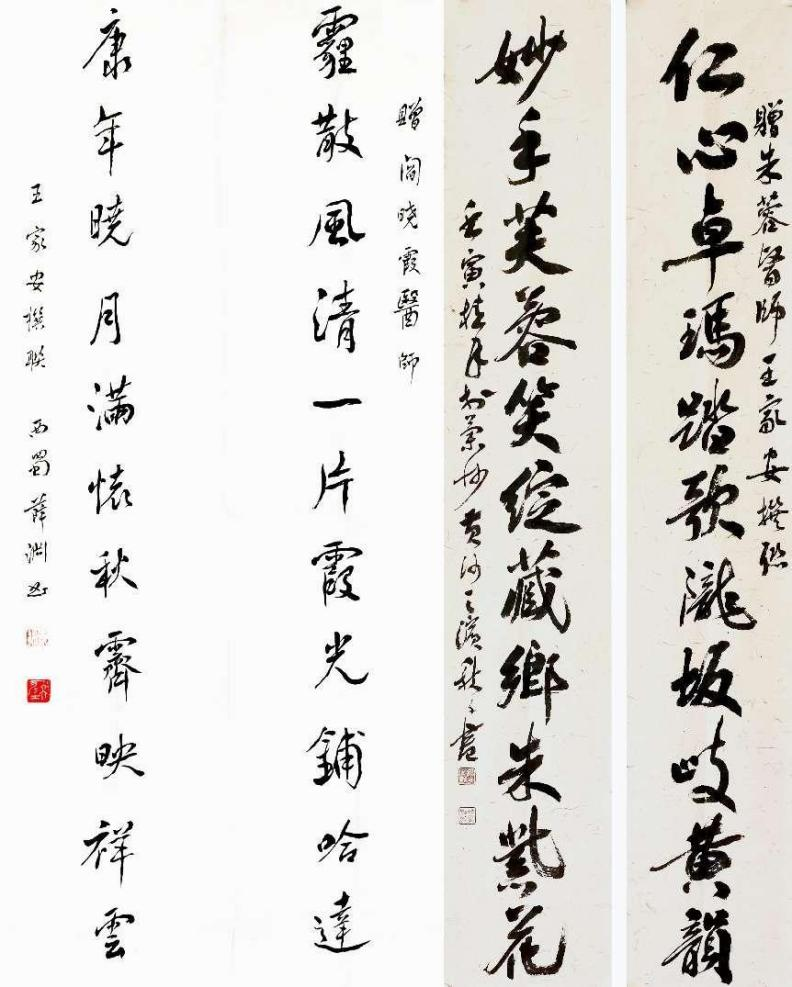 贈朱蓉醫師 王家安撰聯
仁心卓瑪踏歌隴坂岐黄韻
妙手芙蓉笑綻藏鄉朱紫花
壬寅桂月於蘭州黄河之濱秋
贈閻曉霞醫師
霾散風清一片霞光鋪哈達
康年曉月滿懷秋霽映祥雲
王家安撰聯 西蜀薛淵書